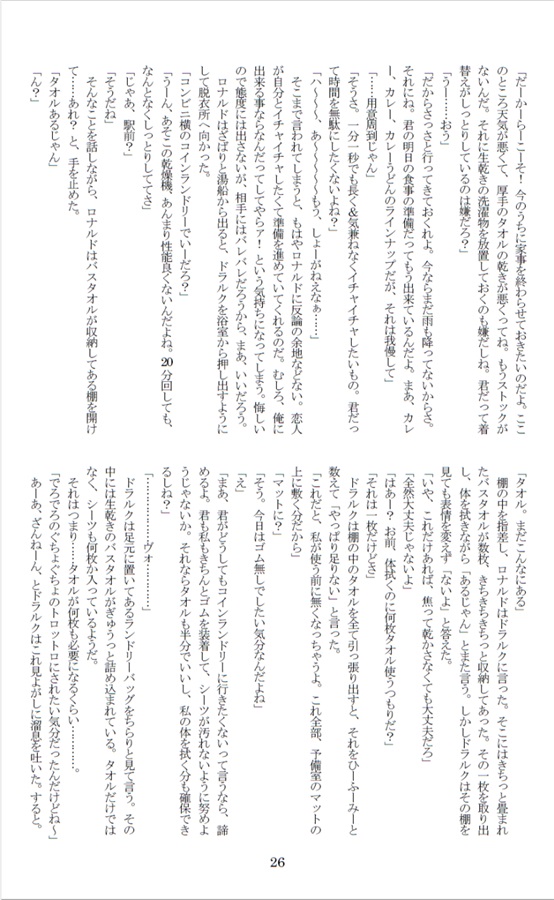 「だーかーらーこーそ！今のうちに家事を終わらせておきたいのだよ。ここ
のところ天気が悪くて、厚手のタオルの乾きが悪くってね。もうストックが
ないんだ。それに生乾きの洗濯物を放置しておくのも嫌だしね。君だって着
替えがしっとりしているのは嫌だろ？」
「うー……おう」
「だからさっさと行ってきておくれよ。今ならまだ雨も降ってないからさ。
それにね。君の明日の食事の準備だってもう出来ているんだよ。まあ、カレ
ー、カレー、カレーうどんのラインナップだが、それは我慢して」
「……用意周到じゃん」
「そうさ、一分一秒でも長く＆気兼ねなくイチャイチャしたいもの。君だっ
て時間を無駄にしたくないよね？」
「ハ～～～、あ～～～～～もう、しょーがねえなぁ……」
そこまで言われてしまうと、もはやロナルドに反論の余地などない。恋人
が自分とイチャイチャしたくて準備を進めていてくれるのだ。むしろ、俺に
出来る事ならなんだってしてやらァ！という気持ちになってしまう。悔しい
ので態度には出さないが、相手にはバレバレだろうから、まあ、いいだろう。
ロナルドはざばりと湯船から出ると、ドラルクを浴室から押し出すように
して脱衣所へ向かった。
「コンビニ横のコインランドリーでいーだろ？」
「うーん、あそこの乾燥機、あんまり性能良くないんだよね。20分回しても、
なんとなくしっとりしててさ」
「じゃあ、駅前？」
「そうだね」
そんなことを話しながら、ロナルドはバスタオルが収納してある棚を開け
て……あれ？と、手を止めた。
「タオルあるじゃん」
「ん？」
「タオル。まだこんなにある」
棚の中を指差し、ロナルドはドラルクに言った。そこにはきちっと畳まれ
たバスタオルが数枚、きちきちきちっと収納してあった。その一枚を取り出
し、体を拭きながら「あるじゃん」とまた言う。しかしドラルクはその棚を
見ても表情を変えず「ないよ」と答えた。
「いや、これだけあれば、焦って乾かさなくても大丈夫だろ」
「全然大丈夫じゃないよ」
「はあ？お前、体拭くのに何枚タオル使うつもりだ？」
「それは一枚だけどさ」
ドラルクは棚の中のタオルを全て引っ張り出すと、それをひーふーみーと
数えて「やっぱり足りない」と言った。
「これだと、私が使う前に無くなっちゃうよ。これ全部、予備室のマットの
上に敷く分だから」
「マットに？」
「そう。今日はゴム無しでしたい気分なんだよね」
「え」
「まあ、君がどうしてもコインランドリーに行きたくないって言うなら、諦
めるよ。君も私もきちんとゴムを装着して、シーツが汚れないように努めよ
うじゃないか。それならタオルも半分でいいし、私の体を拭く分も確保でき
るしね？」
「……………ヴォ…………」
ドラルクは足元に置いてあるランドリーバッグをちらりと見て言う。その
中には生乾きのバスタオルがぎゅうっと詰め込まれている。タオルだけでは
なく、シーツも何枚か入っているようだ。
それはつまり……タオルが何枚も必要になるくらい…………。
「でろでろのぐちょぐちょのトロットロにされたい気分だったんだけどね～」
あーあ、ざんねーん、とドラルクはこれ見よがしに溜息を吐いた。すると。
26